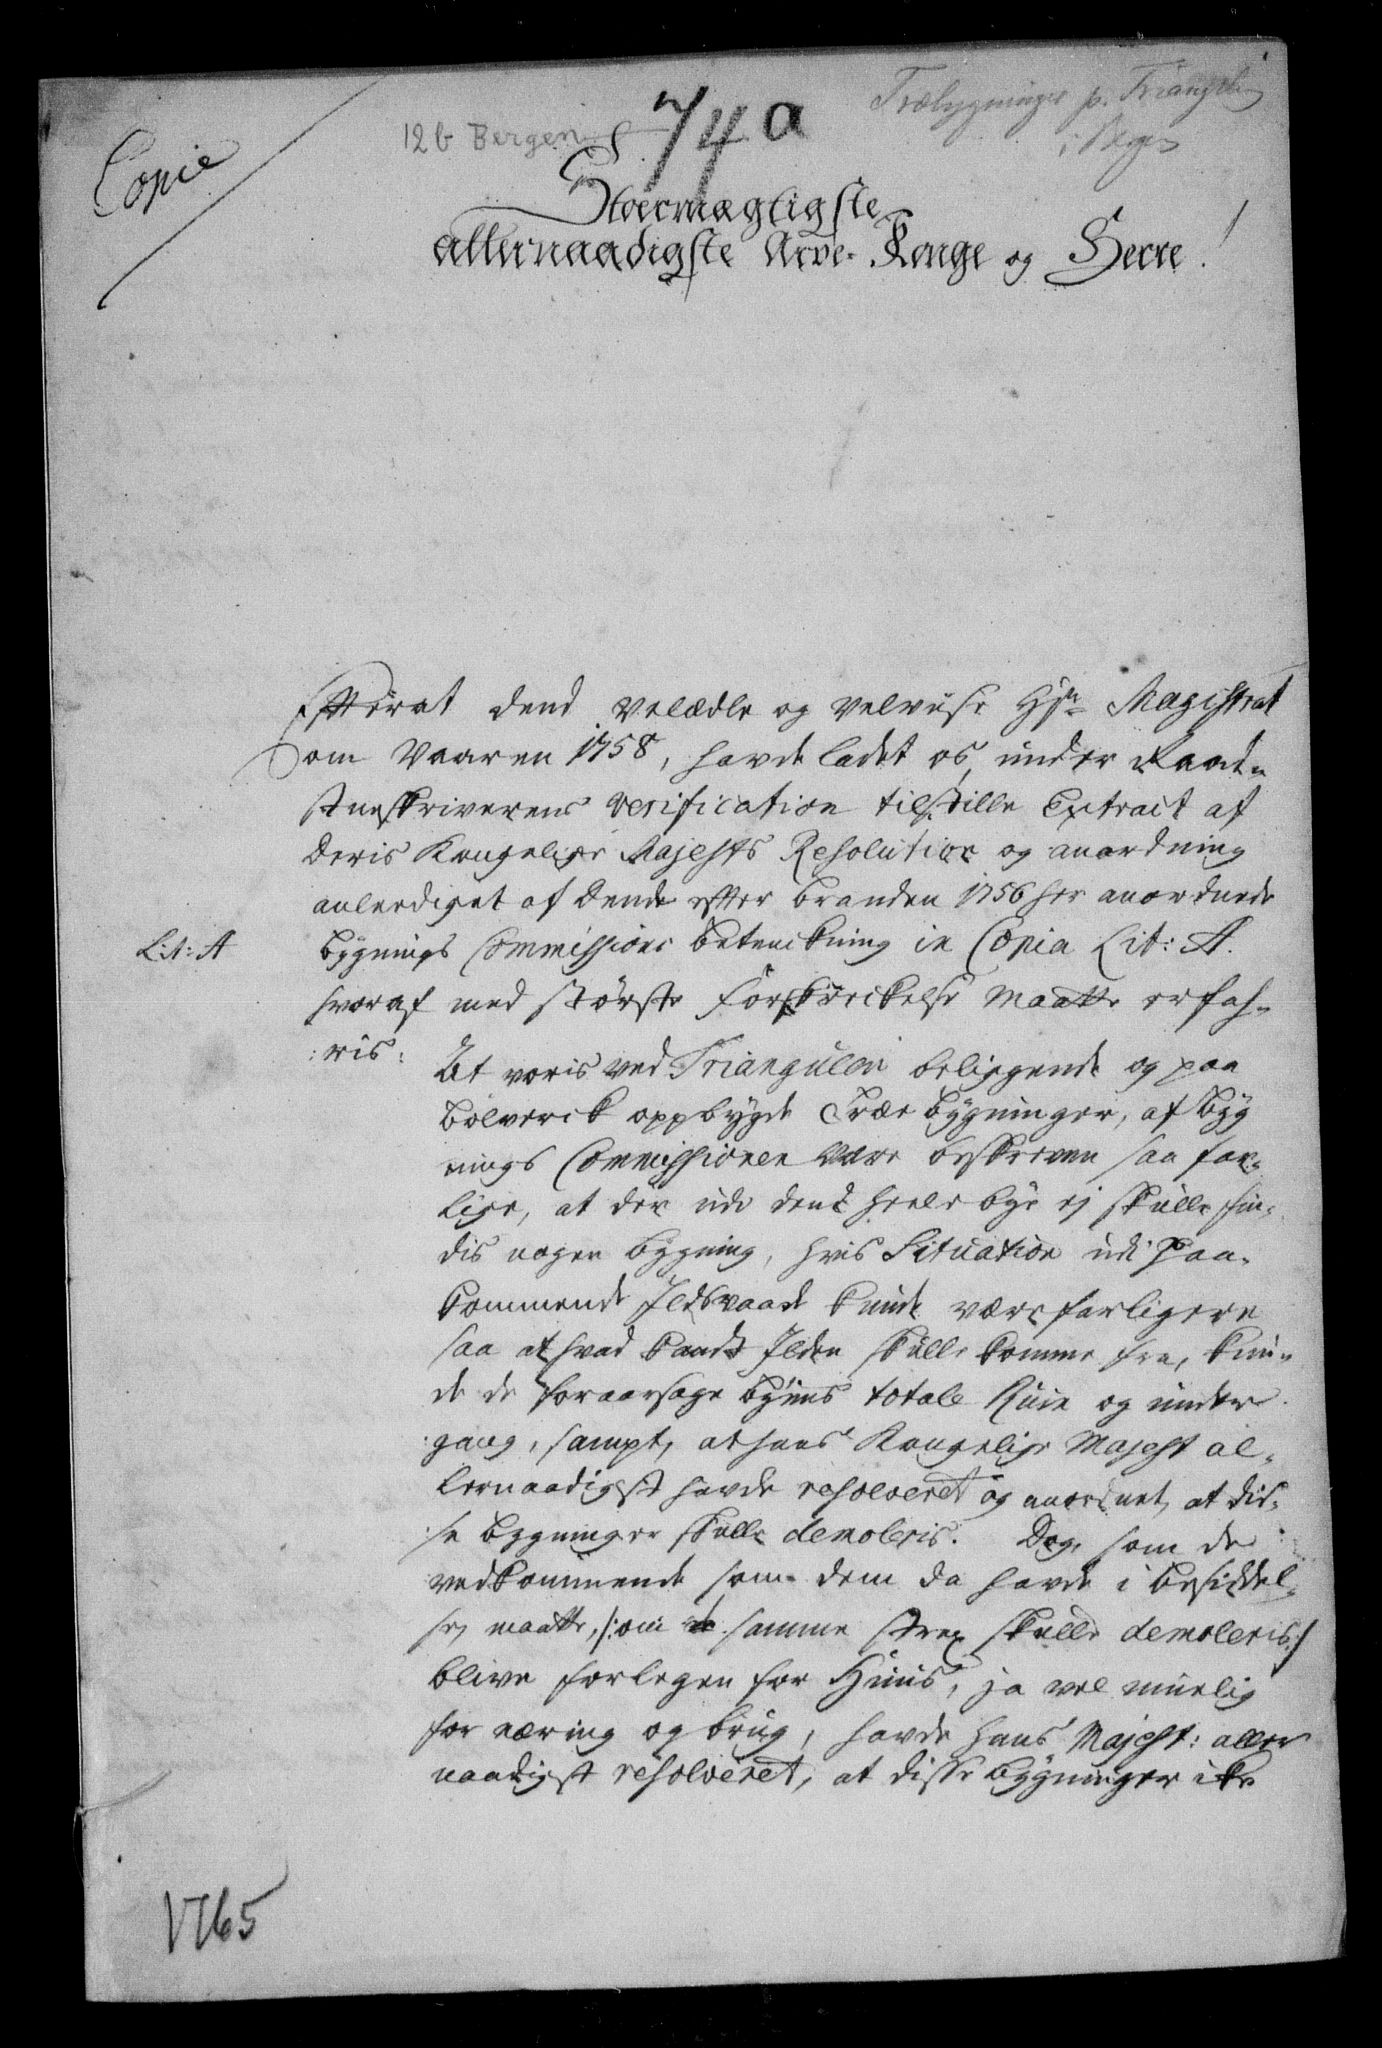 Træbygninger p. Triangelen
i Bergen
12 b Bergen
74 a
Copie
Stoermægtigste
allernaadigste Arve-Konge og Herre!
Efterat dend Velædle og Velviise Hr: Magistrat
om Vaaren 1758, havde ladet os under Raad-
stueskriverens Verification tilstille Extract af
Deris Kongelige Majests Resolution og anordning
anlediget af Dend efter branden 1756 her anordnede
bygnings Commissions betenckning in Copia Lit: A.
Lit: A
hvoraf med største forskreckelse Maatte erfah-
:ris:
At voris ved Triangulen beliggende og paa
bolverck oppbygde Træe bygninger, af byg
nings Commissionen vare beskreven saa far-
lige, at der udi dend heele bye ej skulle fin-
dis nogen bygning, hvis Situation udi Paa-
kommende Ildsvaade kunde være farligere
saa at hvad kandt Ilden skulle komme fra, kun-
de de foraarsage byens totale Ruin og under
gang, sampt, at hans Kongelige Majest al-
lernaadigst havde resolveret og anordnet, at dis-
se bygninger skulle demoleris. Dog, som de
vedkommende som dem da havde i besiddel-
se, maatte, /: om samme strax skulle demoleris :/
blive forlegen for Huus, ja vel muelig
for næring og brug, havde hans Majest: aller
naadigst resolveret, at disse bygninger icke
1765